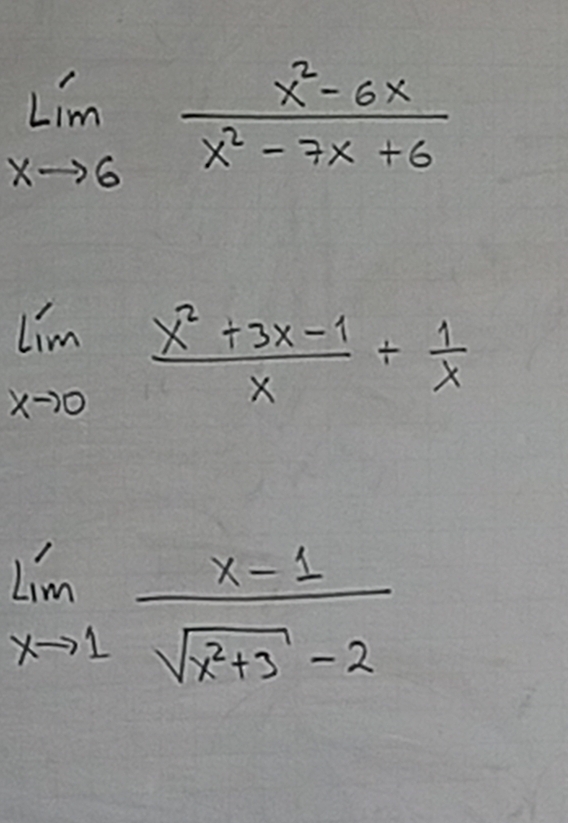 Lím x→6 (x² - 6x) / (x² - 7x + 6)
Lím x→0 (x² + 3x - 1) / x + 1/x
Lím x→1 (x - 1) / (√(x²+3) - 2)